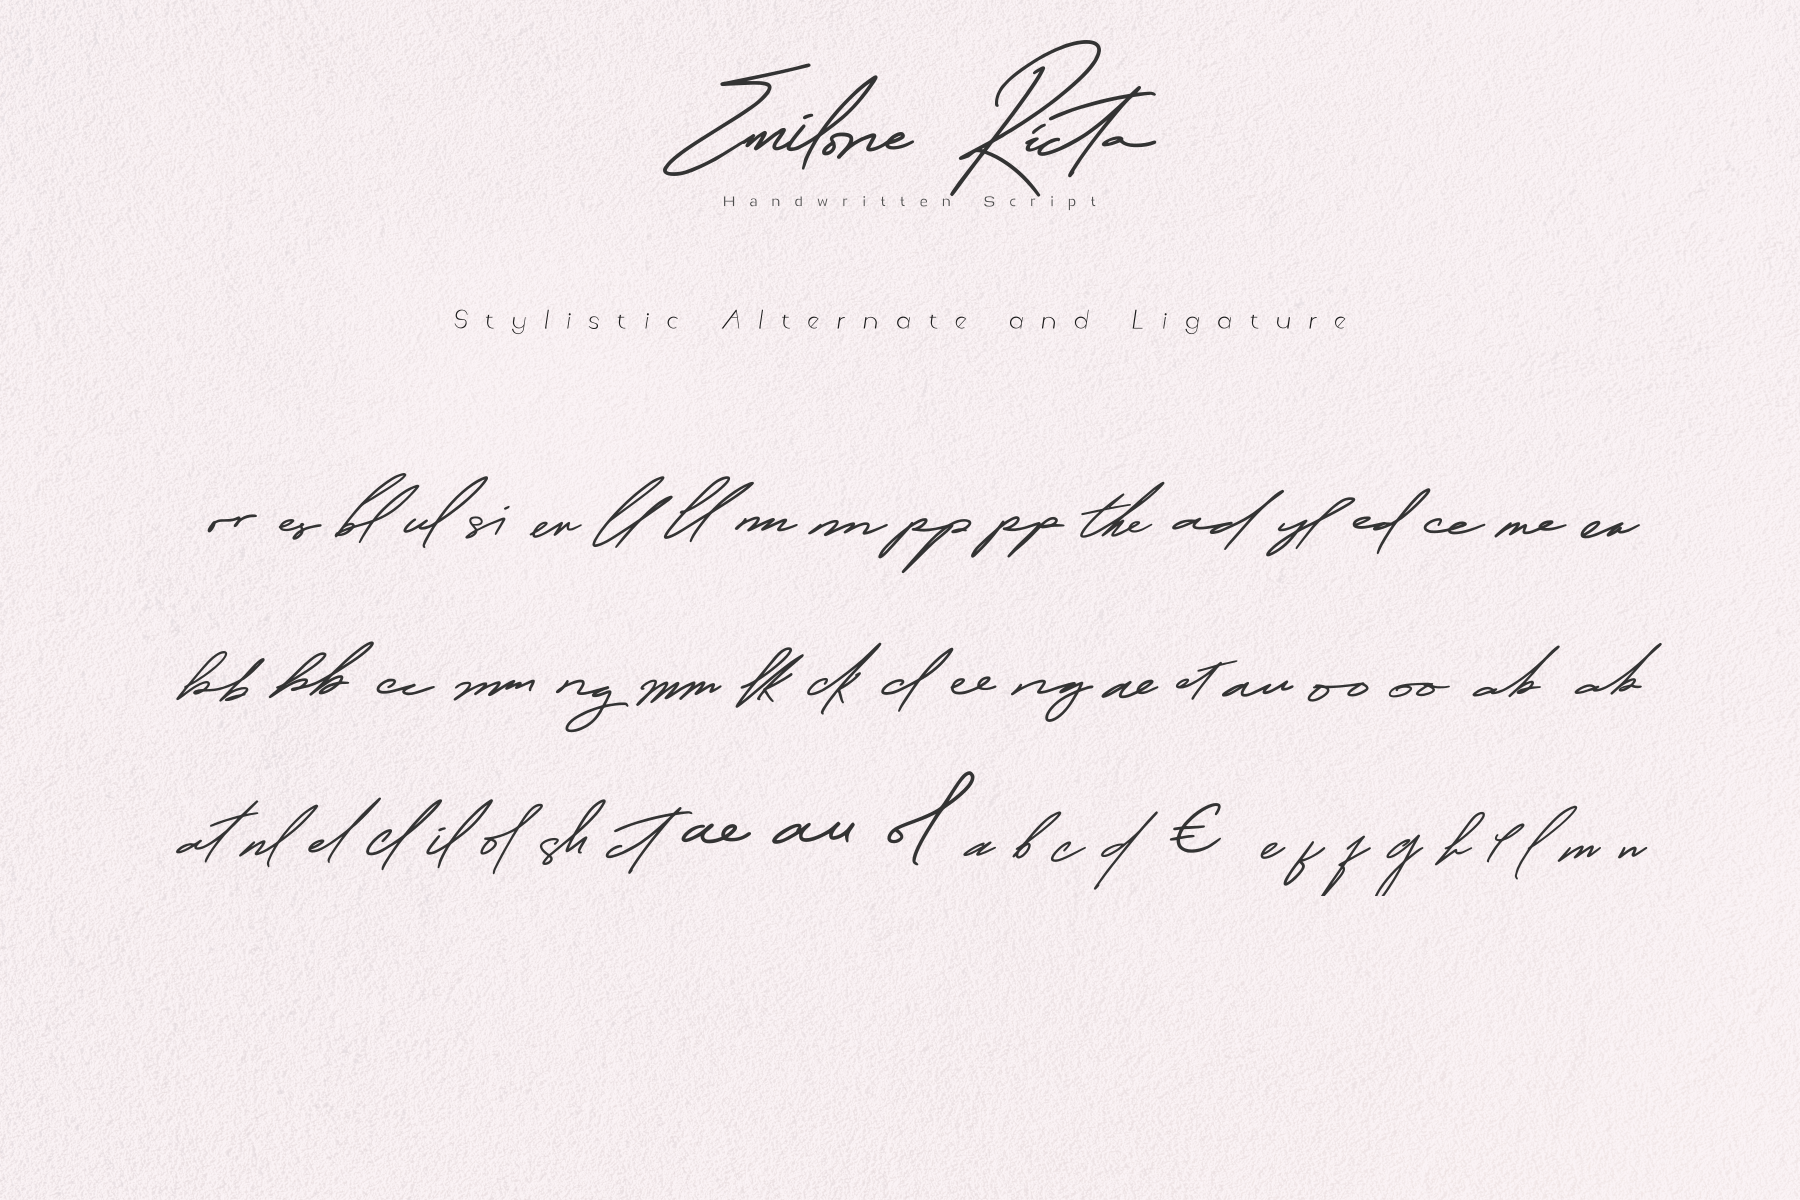 Emilone Ricta
Handwritten Script
Stylistic Alternate and Ligature
or es bl ul si er ll ll nn nn pp pp the ad yl ed ce me ea
bb bb cc mm ng mm lk ck cl ee ng ae et au oo oo ab ab
at nl el cl il ol sh ct ae au ol a b c d € e f f g h l l m n